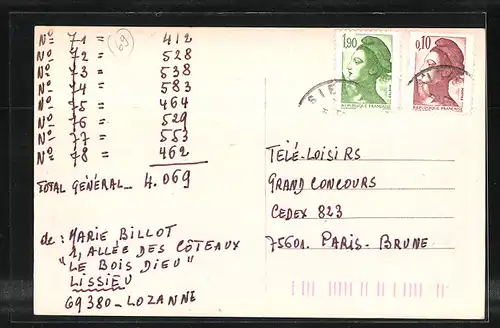 Nº 71 = 412
Nº 72 = 528
Nº 73 = 538
Nº 74 = 583
Nº 75 = 464
Nº 76 = 529
Nº 77 = 553
Nº 78 = 462
TOTAL GÉNÉRAL_ 4.069
de : MARIE BILLOT
1, ALLÉE DES CÔTEAUX
"LE BOIS DIEU"
LISSIEU
69380_LOZANNE
69
1,90
REPUBLIQUE FRANÇAISE
0,10
REPUBLIQUE FRANÇAISE
TELÉ-LOISIRS
GRAND CONCOURS
CEDEX 823
75601. PARIS-BRUNE